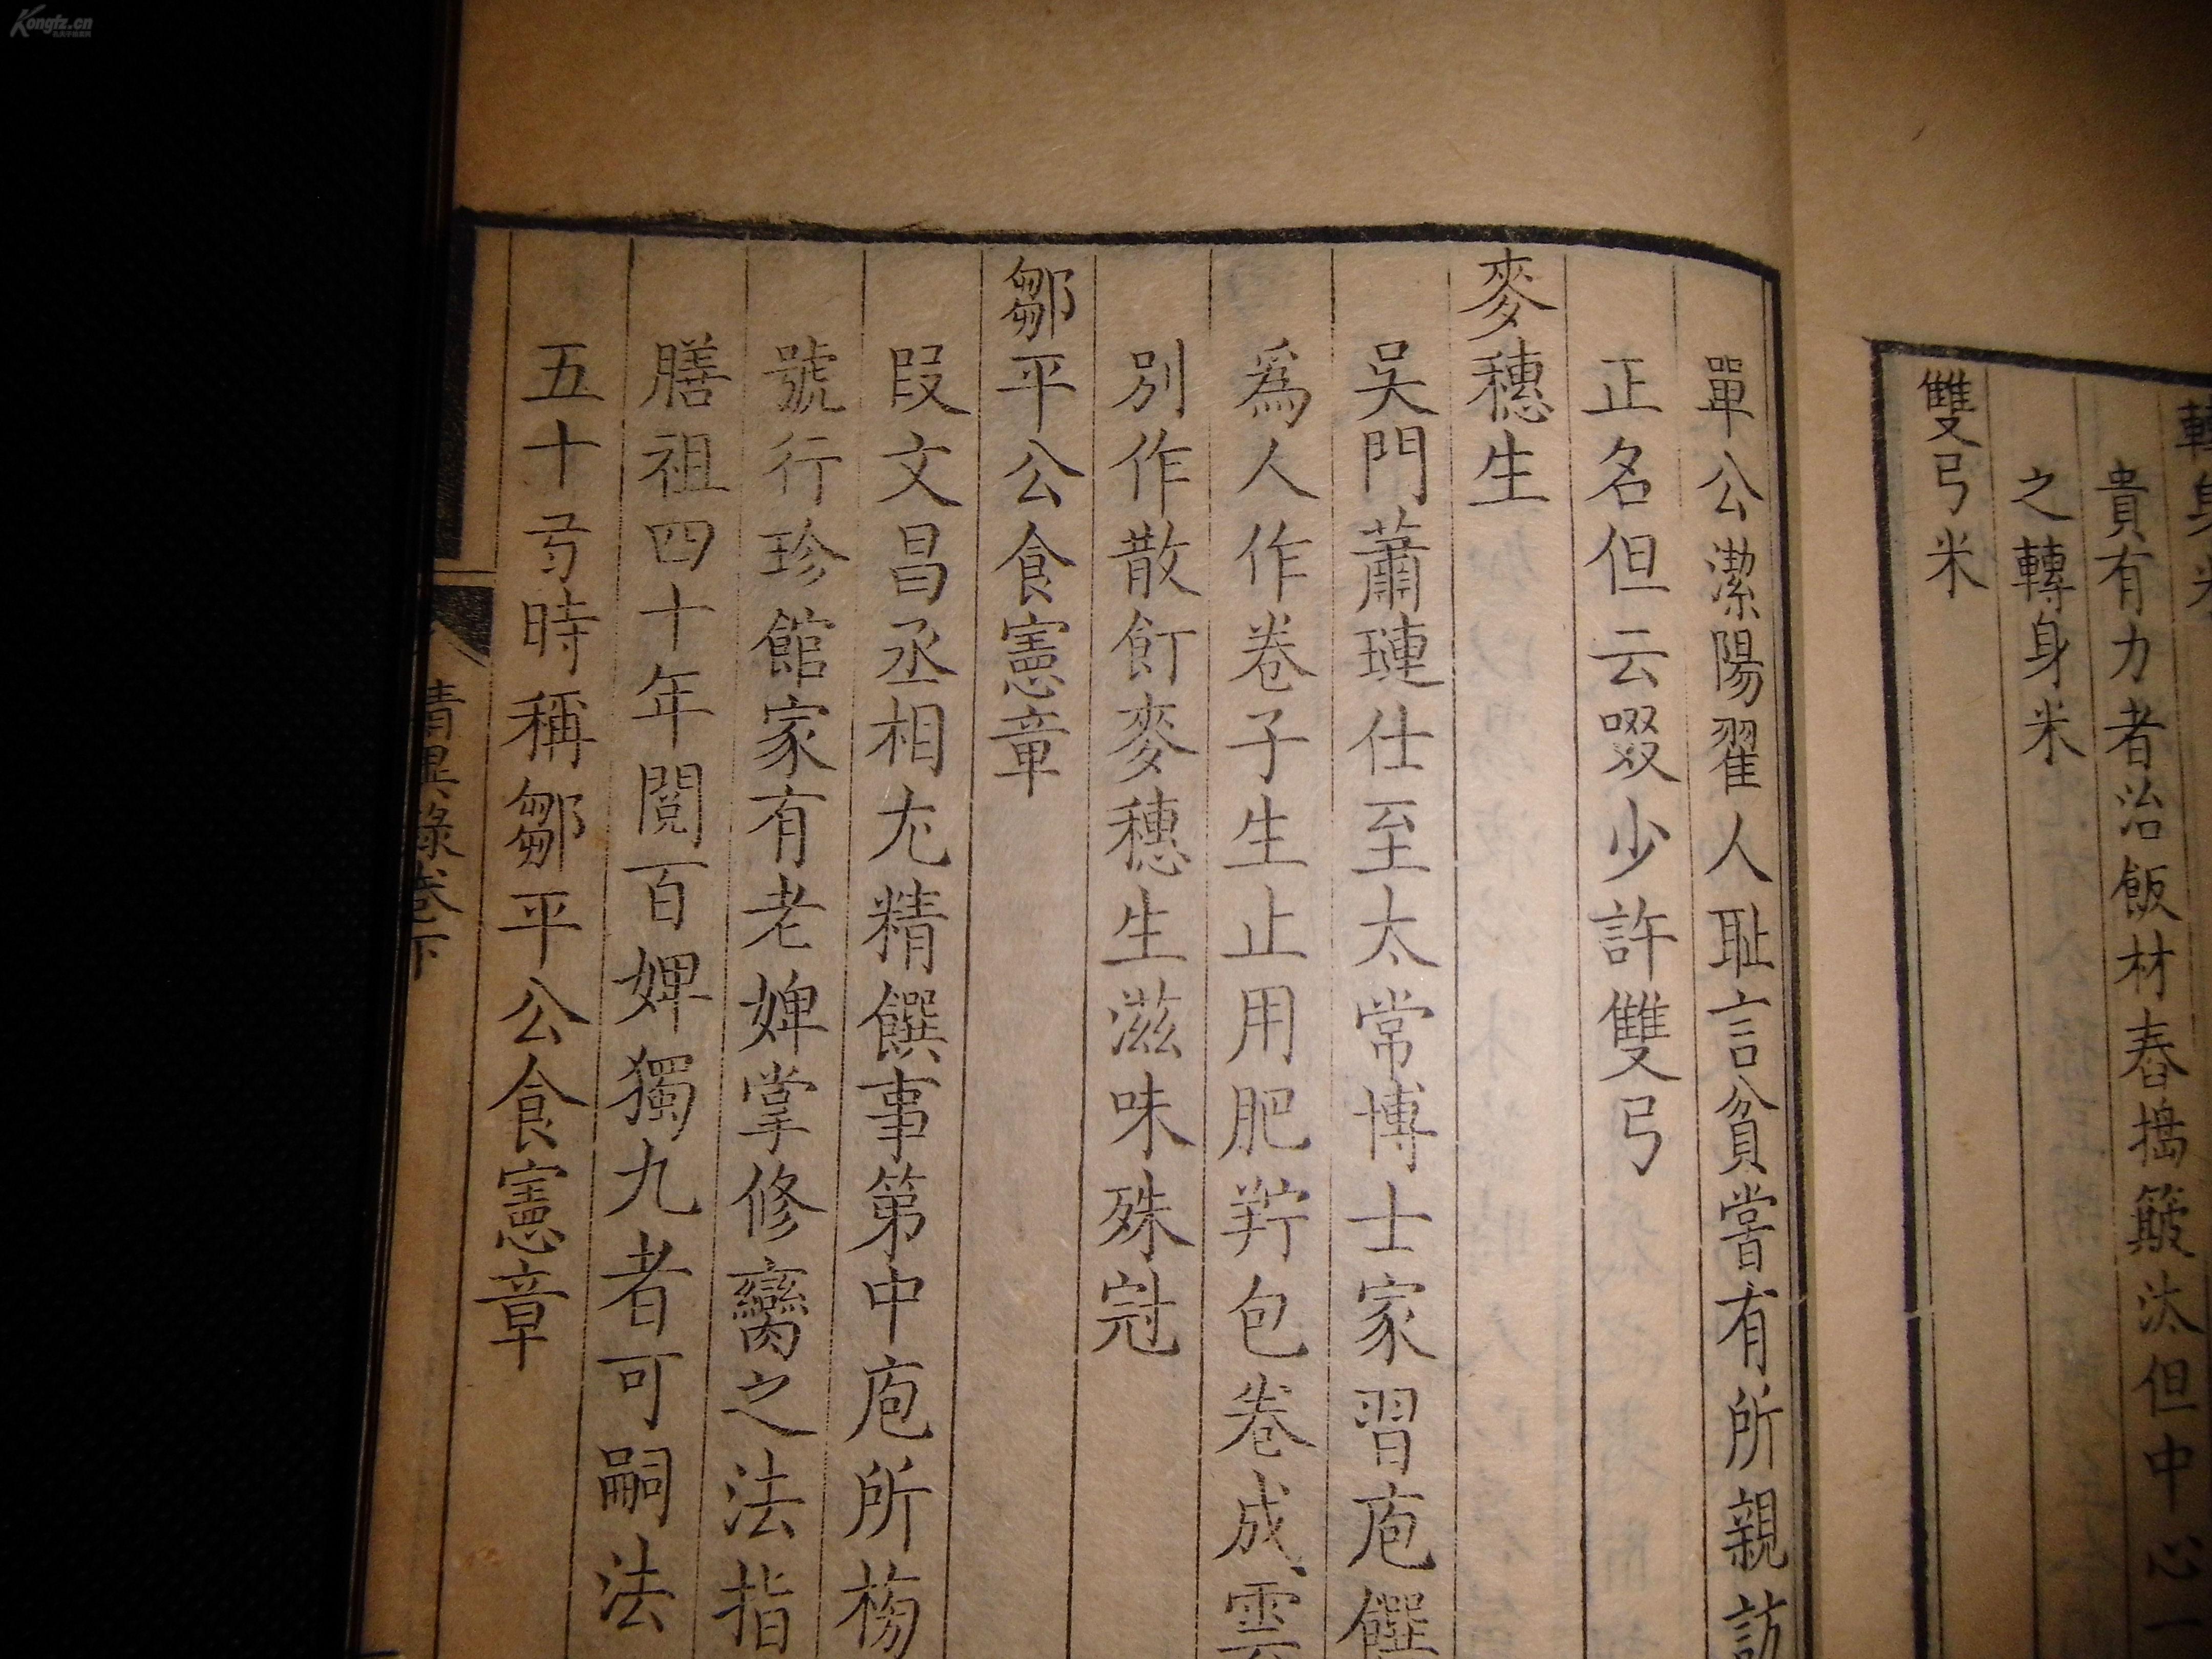 Kongfz.cn
貴有力者治飯材舂擣簸汰但中心一
之轉身米
雙弓米
單公潔陽翟人耻言貧嘗有所親訪
正名但云啜少許雙弓
麥穗生
吴門蕭璉仕至太常博士家習庖饌
爲人作卷子生止用肥羜包卷成雲
別作散飣麥穗生滋味殊冠
鄒平公食憲章
段文昌丞相尤精饌事第中庖所榜
號行珍館家有老婢掌修臠之法指
膳祖四十年閱百婢獨九者可嗣法
五十𢎥時稱鄒平公食憲章
清異錄卷下